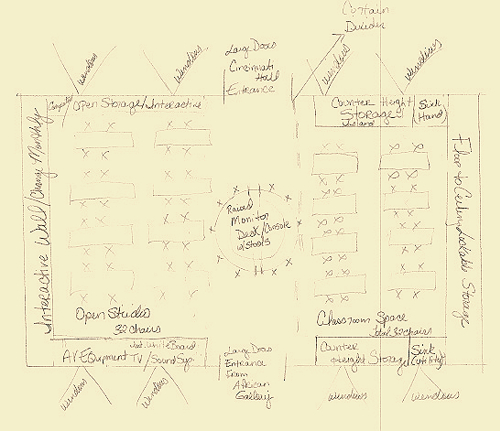 Curtain
Divider
windows
windows
Large Doors
Cincinnati
Hall
Entrance
windows
windows
Computer
Open Storage/Interactive
Counter Height
Storage
Island
Sink
(Hand)
Interactive Wall/Change Monthly
Floor to Ceiling Lockable Storage
Round
Monitor
Desk/Console
w/Stools
Open Studio
32 Chairs
Classroom Space
Total 32 chairs
White Board
AV Equipment TV/Sound Sys.
Large Doors
Entrance
From
African
Gallery
Counter
Height Storage
Sink
(Utility)
windows
windows
windows
windows